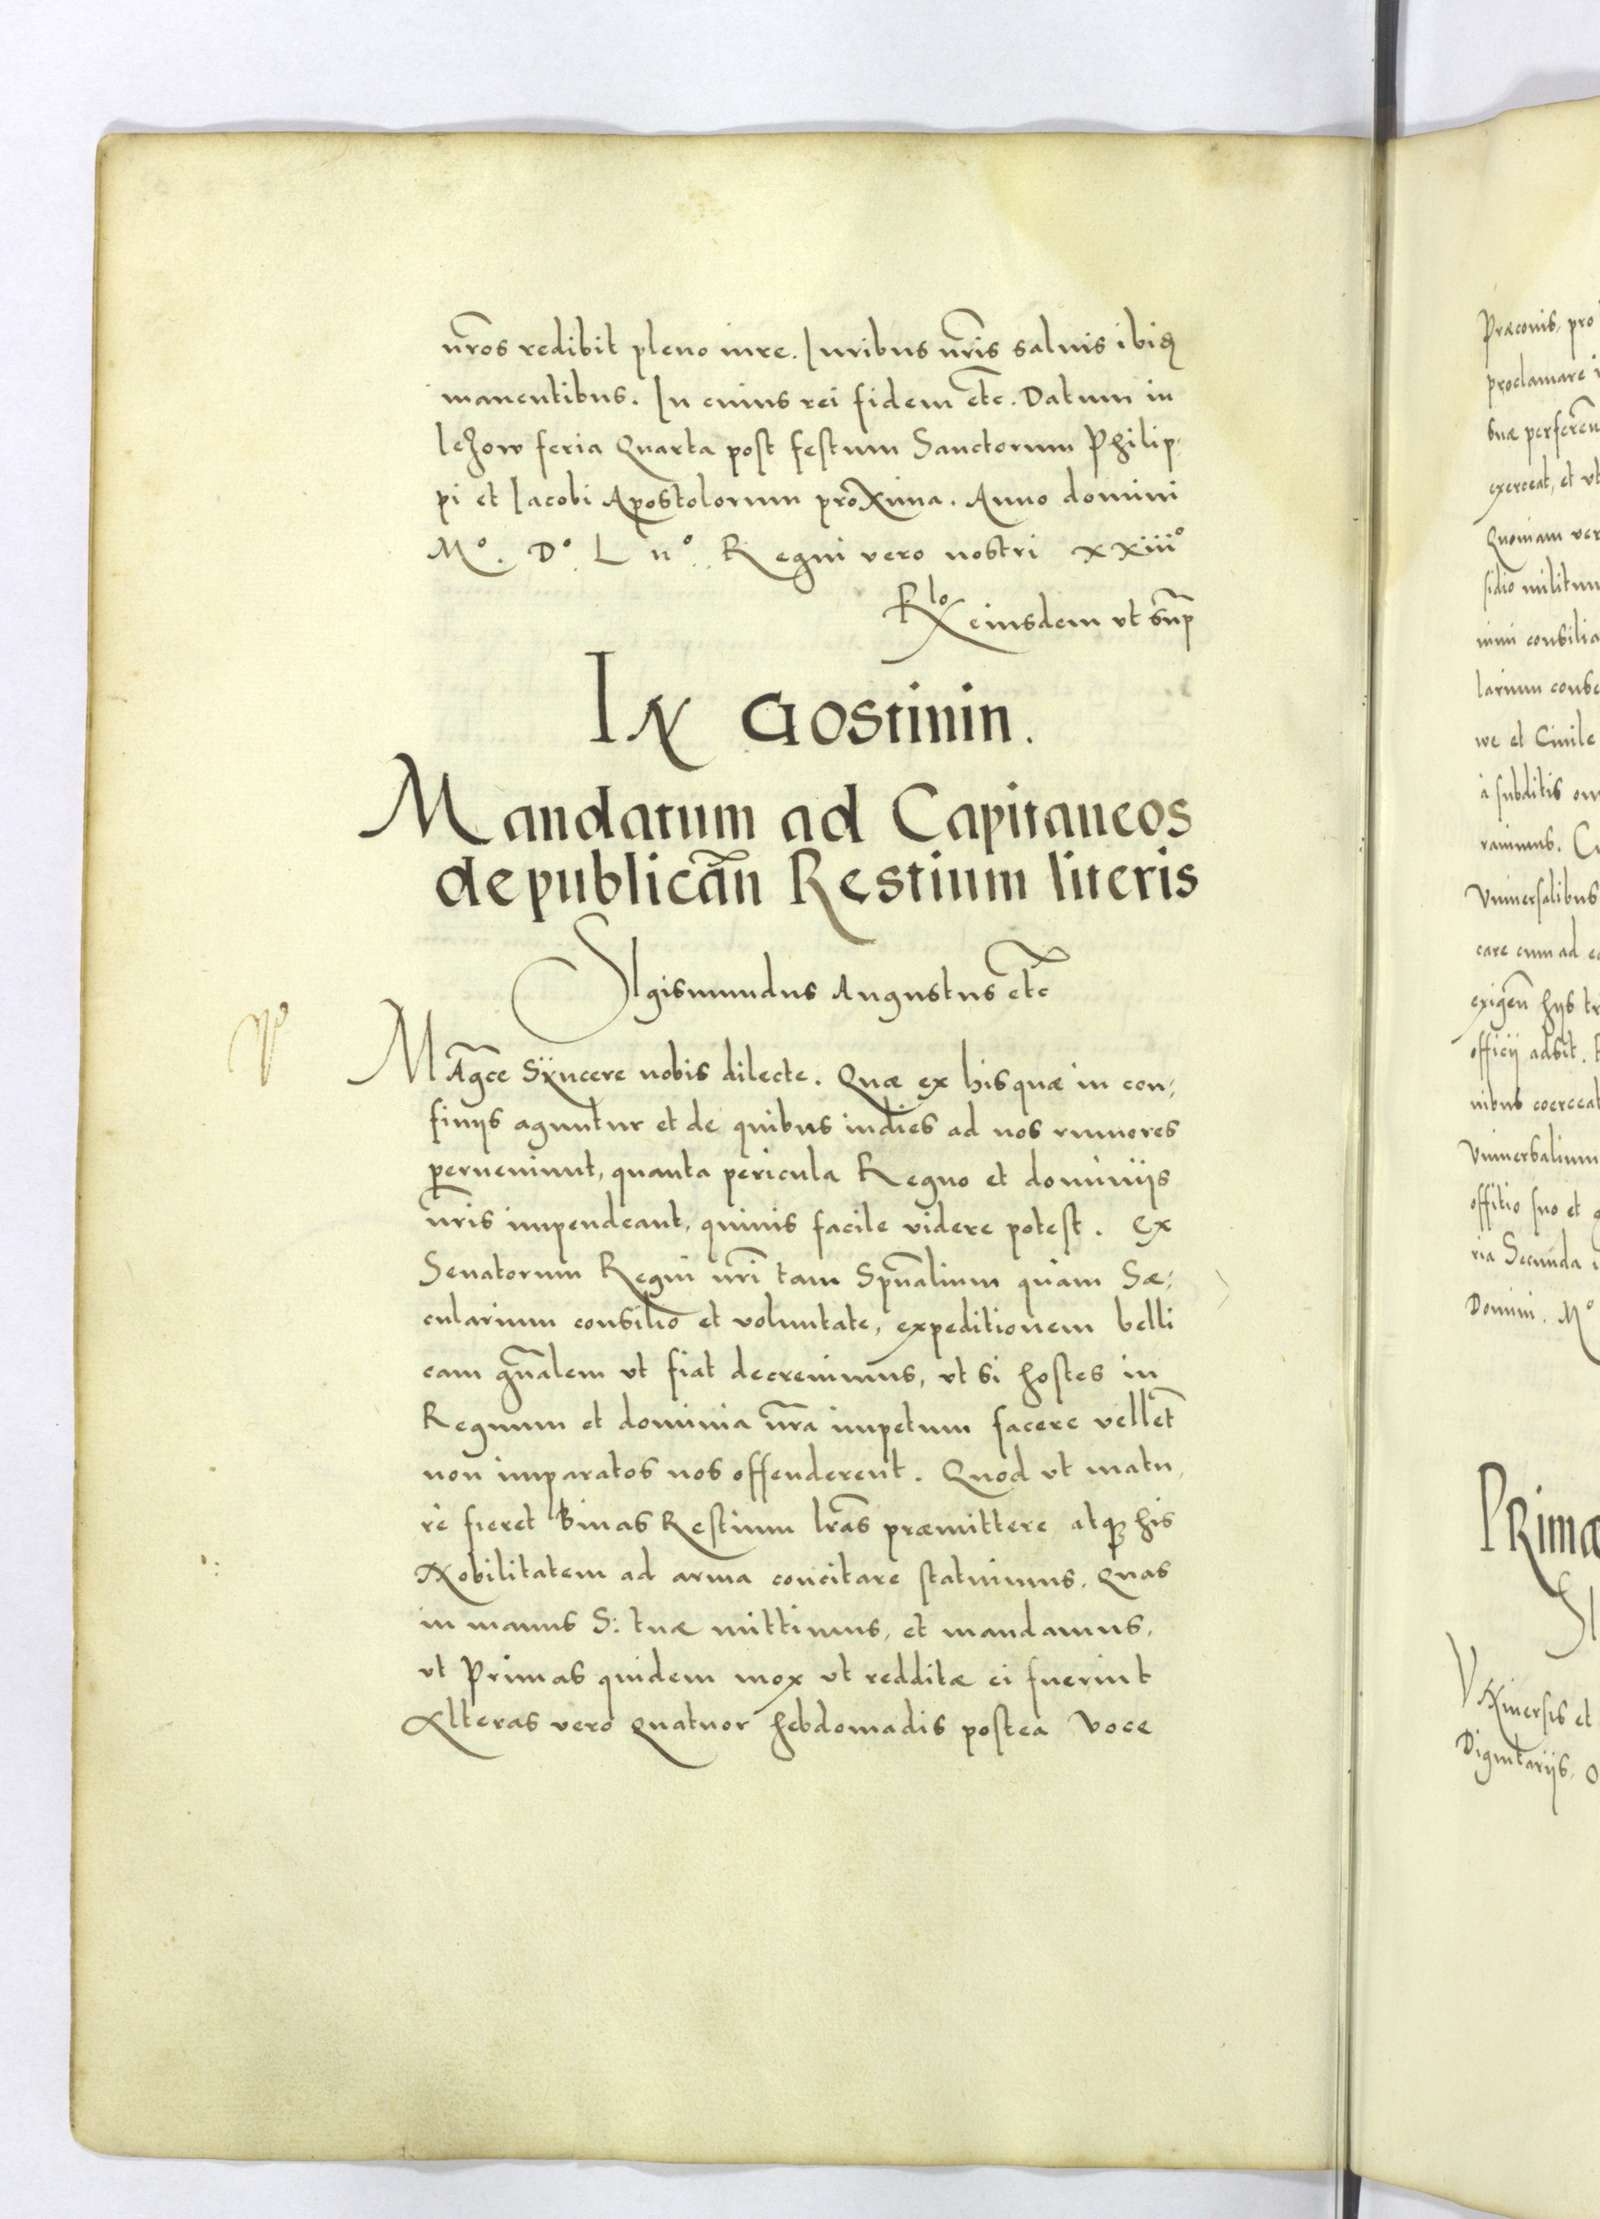 nr̃os redibit pleno iure. Iuribus nr̃is saluis ibiq3
manentibus. In cuius rei fidem etc̃. Datum in
lezow feria Quarta post festum Sanctorum Philip,
pi et Iacobi Apostolorum proxima. Anno domini
Mº. Dº. L IIº. Regni vero nostri XXIIIº
Rlo eiusdem vt sup̃
IN GOstinin.
Mandatum ad Capitaneos
de publicañ Restium literis
SIgismundus Augustus etc̃
MAgc̃e Syncere nobis dilecte. Quæ ex his quæ in con,
finijs aguntur et de quibus indies ad nos rumores
perueniunt, quanta pericula Regno et dominijs
nr̃is impendeant, quiuis facile videre potest. Ex
Senatorum Regni nr̃i tam Spũalium quam Sæ,
cularium consilio et voluntate, expeditionem belli
cam gñalem vt fiat decreuimus, vt si hostes in
Regnum et dominia nr̃a impetum facere velleñt
non imparatos nos offenderent. Quod vt matu,
re fieret Binas Restium lr̃as præmittere atq3 his
Nobilitatem ad arma concitare statuimus. Quas
in manus S: tuæ mittimus, et mandamus,
vt Primas quidem mox vt redditæ ei fuerint
Alteras vero quatuor hebdomadis postea voce
Præconis, pro
proclamare
suæ perfereñ
exerceat, et vt
Quoniam ver
sidio militum
nimi consilia
larium conse
we et Ciuile
à subditis om
raimus.
Vniuersalibus
care cum ad
exigeñ hijs tr
officij adsit.
nibus coerceat
Vniuersalium
offitio suo et
ria Secunda
Domini. Mº
PRimæ
SI
VNiuersis et
Dignitarijs, O